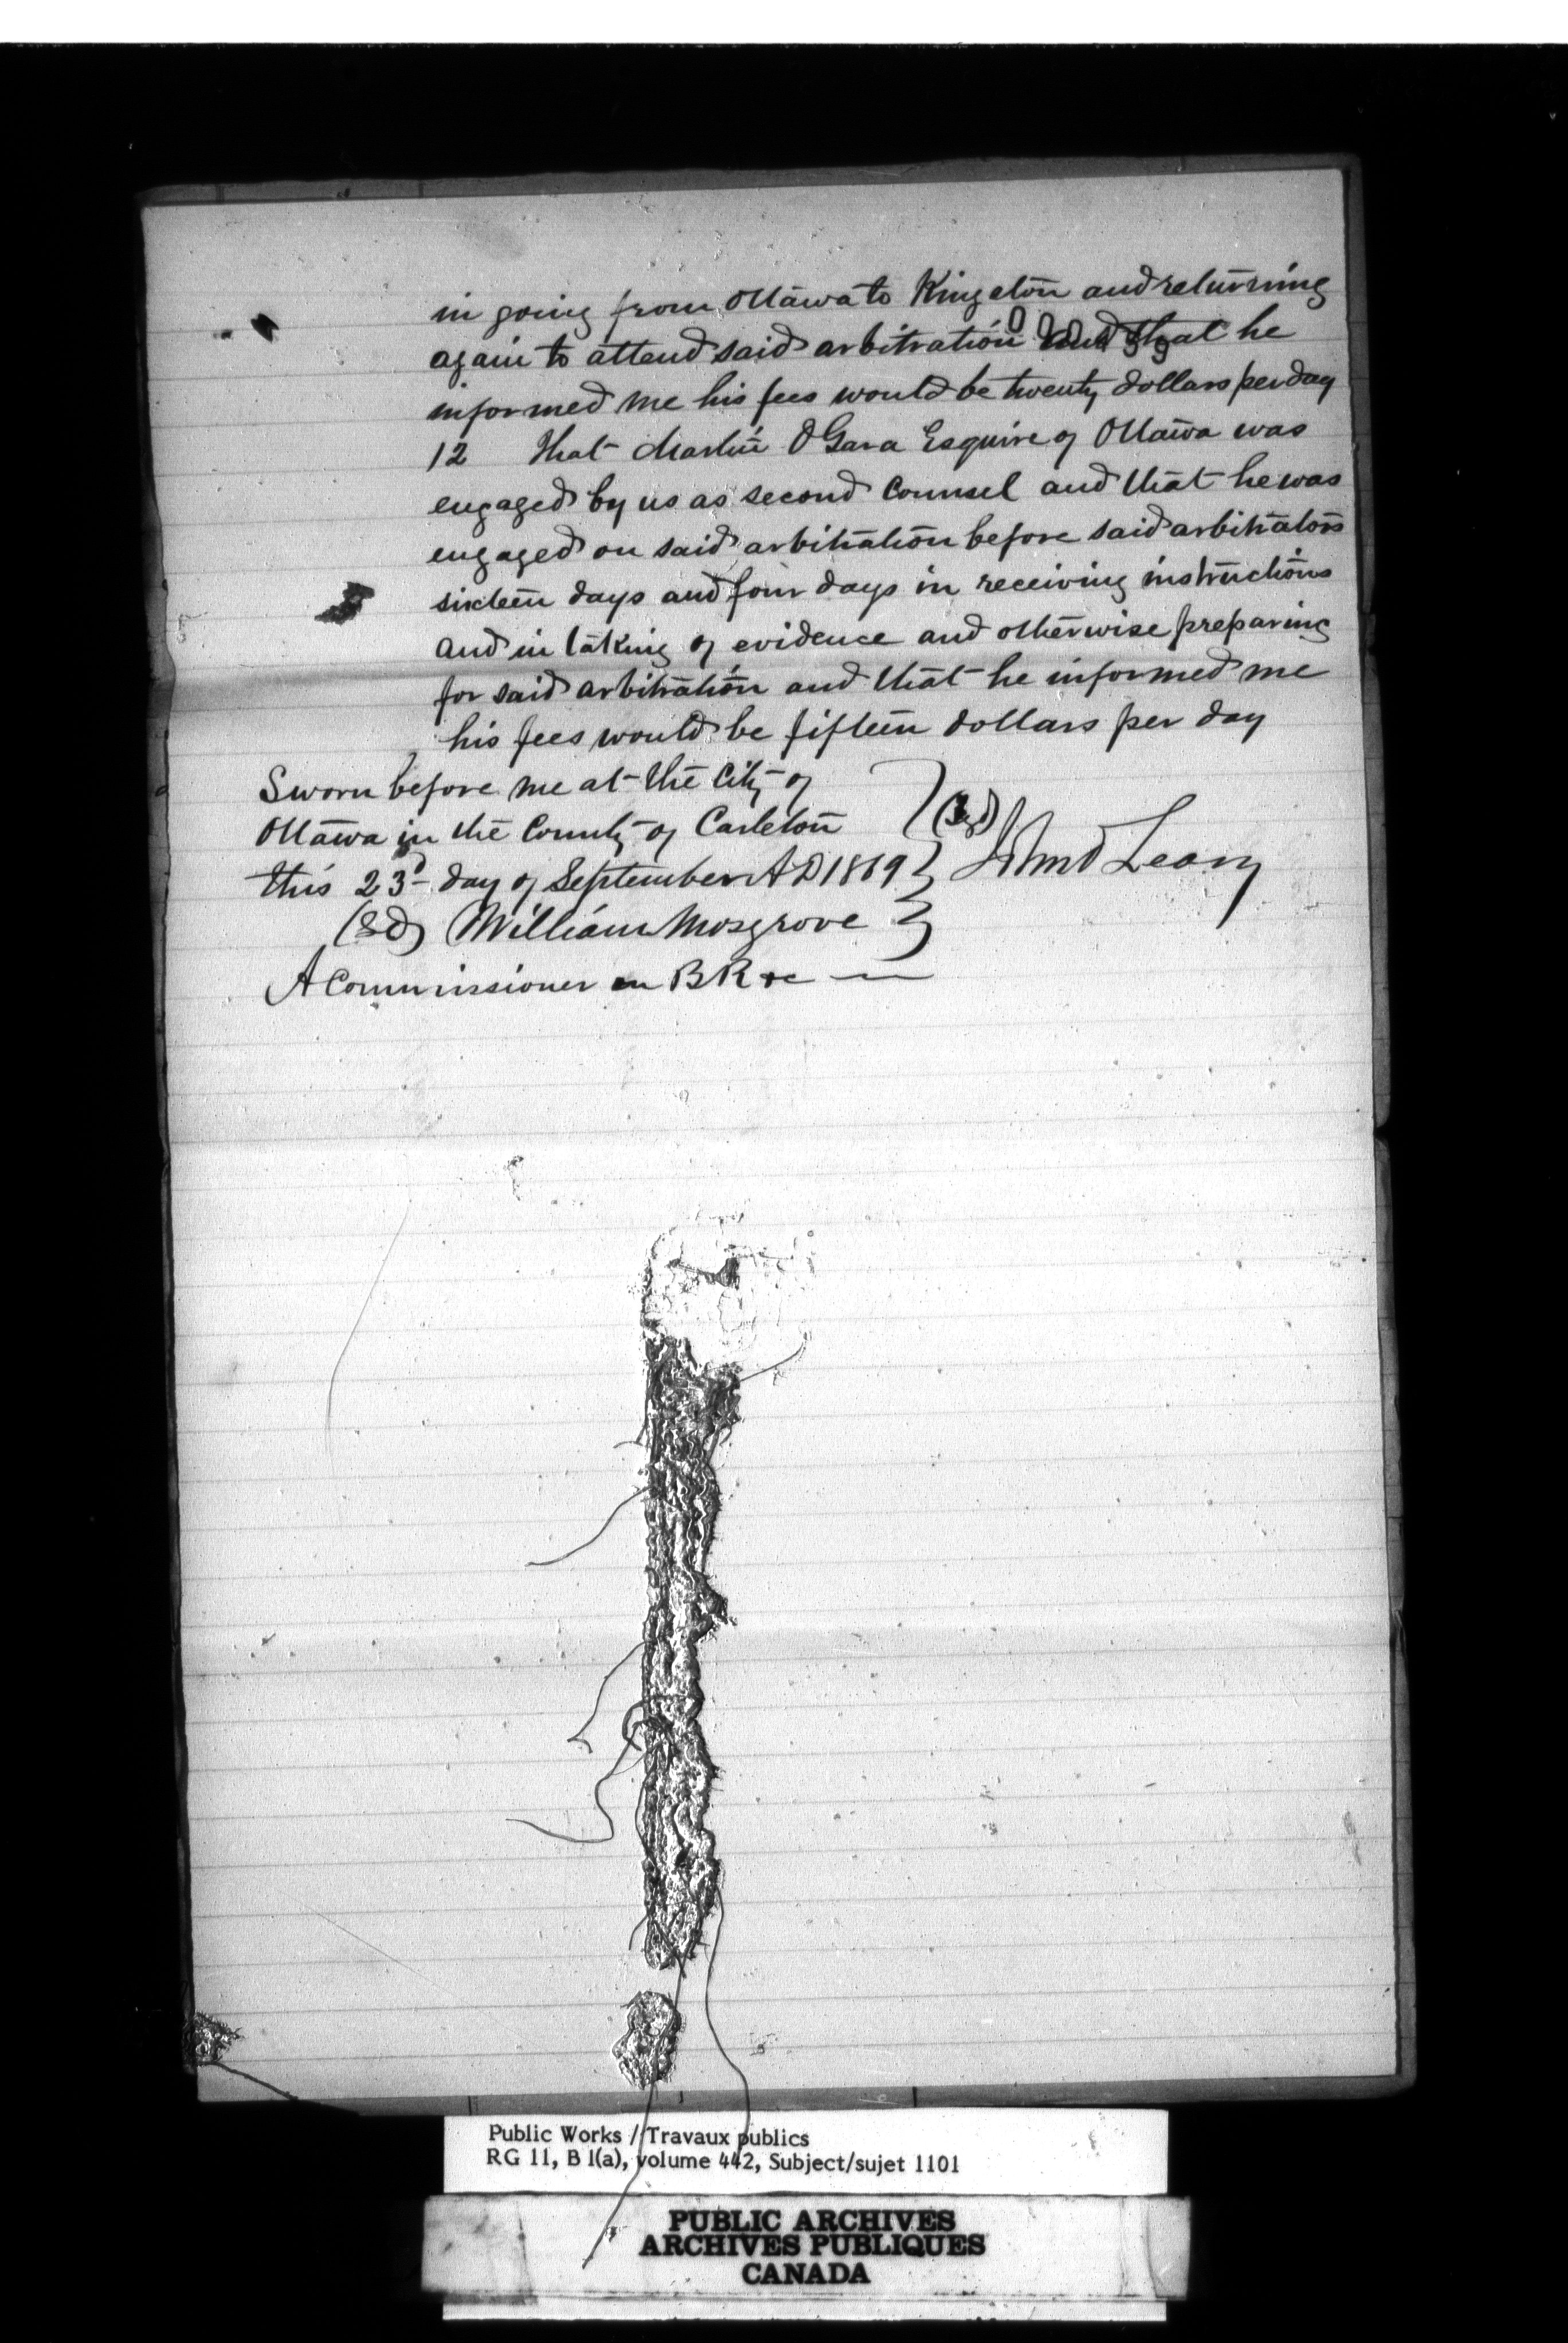 in going from Ottawa to Kingston and returning
again to attend said arbitration and that he
informed me his fees would be twenty dollars per day
12 That Martin O'Gara Esquire of Ottawa was
engaged by us as second Counsel and that he was
engaged on said arbitration before said arbitrators
sixteen days and four days in receiving instructions
and in taking of evidence and otherwise preparing
for said arbitration and that he informed me
his fees would be fifteen dollars per day
Sworn before me at the City of
Ottawa in the County of Carleton
this 23d day of September A D 1869
(Sgd) John O Leary
(Sd) William Mosgrove
A Commissioner in B R &c
Public Works / Travaux publics
RG 11, B 1(a), volume 442, Subject/sujet 1101
PUBLIC ARCHIVES
ARCHIVES PUBLIQUES
CANADA